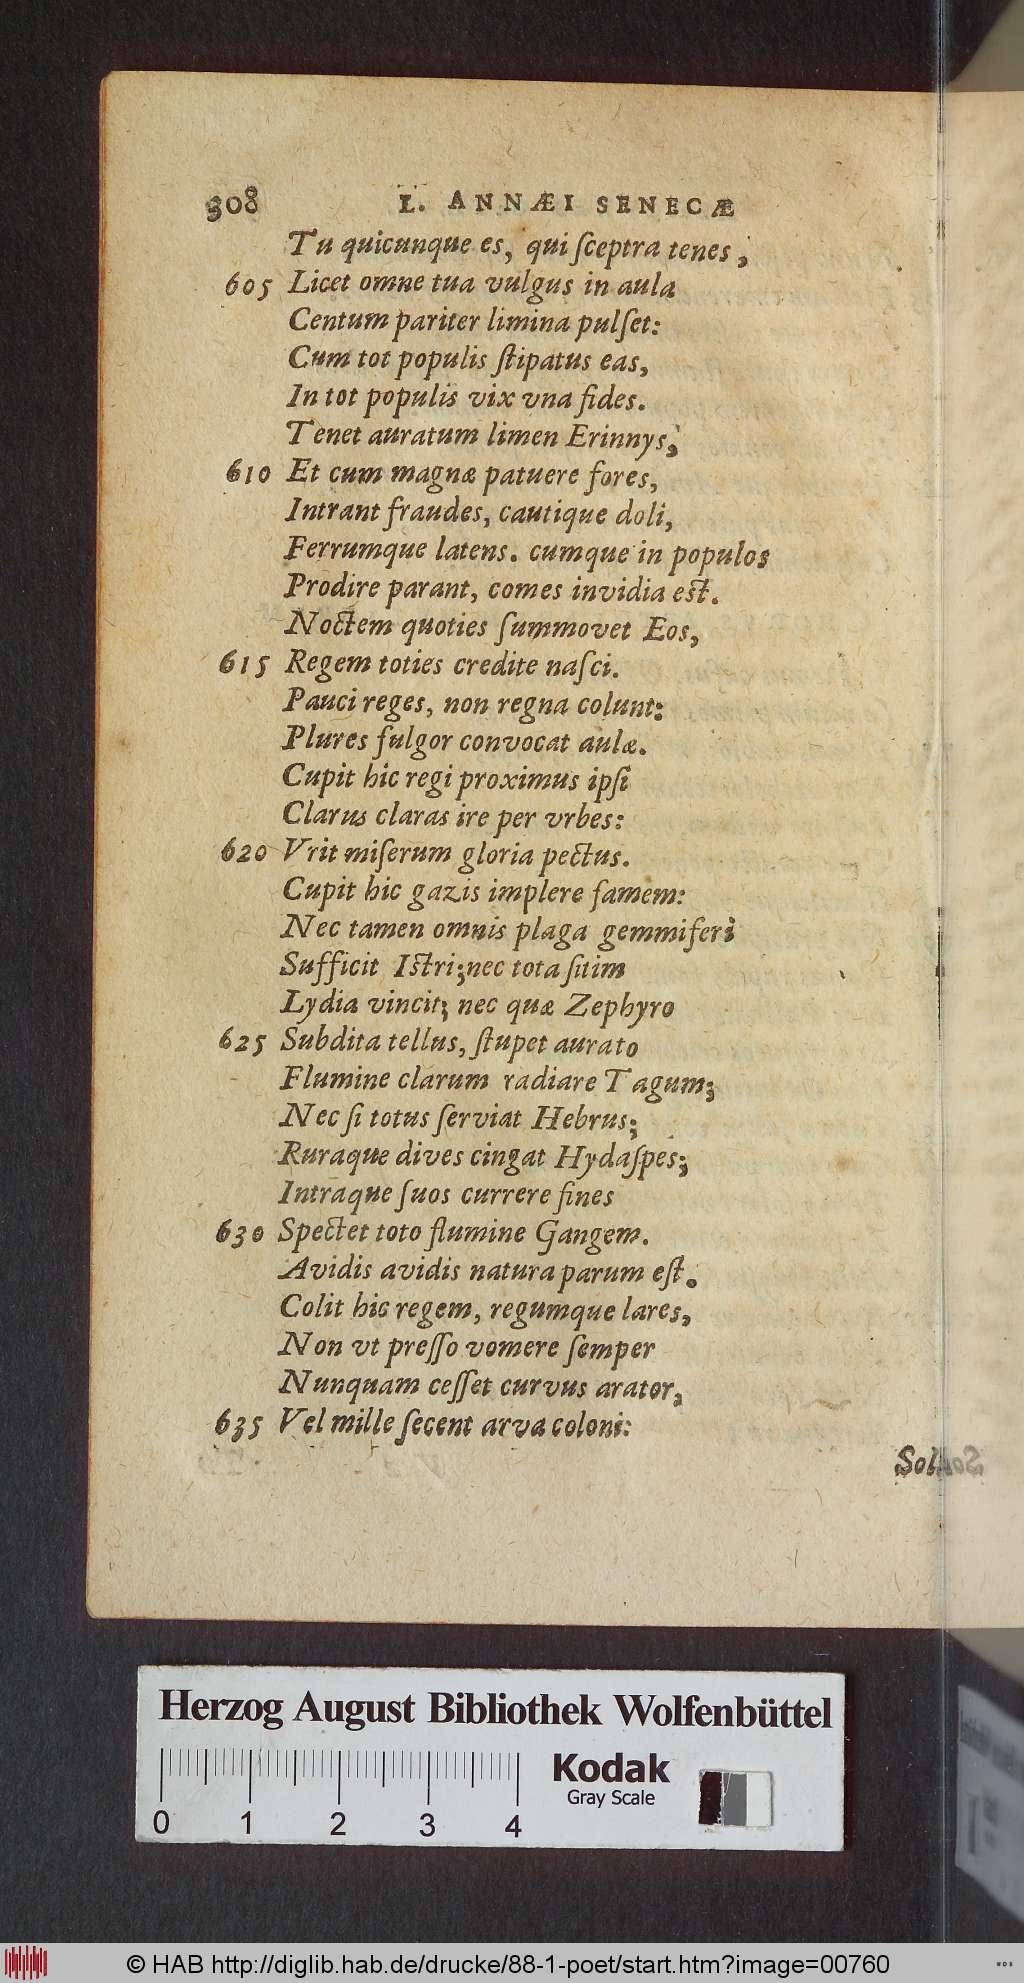 308 L. ANNÆI SENECÆ
Tu quicunque es, qui ſceptra tenes,
605 Licet omne tua vulgus in aula
Centum pariter limina pulſet:
Cum tot populis ſtipatus eas,
In tot populis vix vna fides.
Tenet auratum limen Erinnys,
610 Et cum magnæ patuere fores,
Intrant fraudes, cautique doli,
Ferrumque latens. cumque in populos
Prodire parant, comes invidia eſt.
Noctem quoties ſummovet Eos,
615 Regem toties credite naſci.
Pauci reges, non regna colunt:
Plures fulgor convocat aulæ.
Cupit hic regi proximus ipſi
Clarus claras ire per vrbes:
620 Vrit miſerum gloria pectus.
Cupit hic gazis implere famem:
Nec tamen omnis plaga gemmiferi
Sufficit Iſtri; nec tota ſitim
Lydia vincit; nec quæ Zephyro
625 Subdita tellus, ſtupet aurato
Flumine clarum radiare Tagum;
Nec ſi totus ſerviat Hebrus;
Ruraque dives cingat Hydaſpes;
Intraque ſuos currere fines
630 Spectet toto flumine Gangem.
Avidis avidis natura parum eſt.
Colit hic regem, regumque lares,
Non vt preſſo vomere ſemper
Nunquam ceſſet curvus arator,
635 Vel mille ſecent arva coloni:
Herzog August Bibliothek Wolfenbüttel
Kodak
Gray Scale
0 1 2 3 4
© HAB http://diglib.hab.de/drucke/88-1-poet/start.htm?image=00760